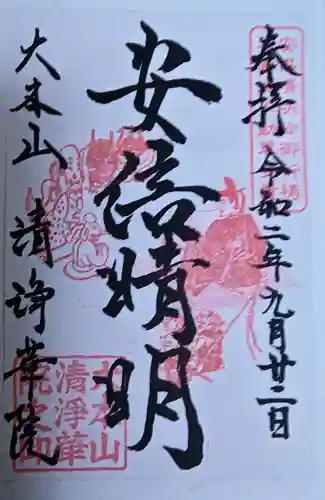 奉拝 令和二年九月廿二日
安倍晴明
大本山 清浄華院
大本山
清淨華
院之印